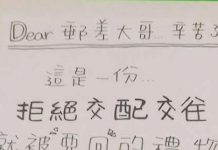 Dear 郵差大哥...辛苦
這是一份...
拒絕交配交往
就被要回的禮物